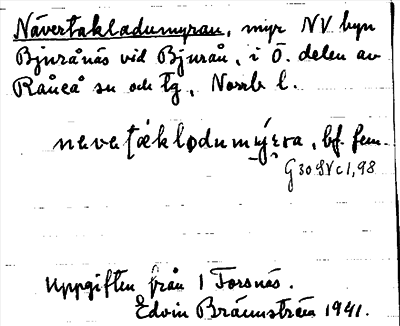 Nävertakladumyran, myr NV byn
Bjurånäs vid Bjurån, i Ö. delen av
Råneå sn och tg, Norrb l.
nevetakladumýra, bf. fem.
G 30 SV c 1, 98
Uppgiften från 1 Forsnäs.
Edvin Brännström 1941.